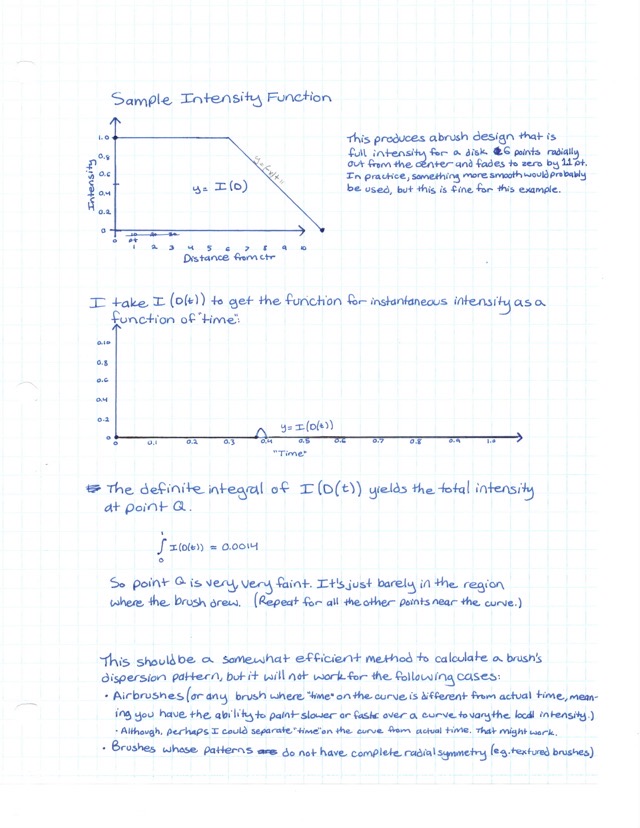 Sample Intensity Function
1.0
0.8
0.6
0.4
0.2
0
Intensity
y = I(D)
0 1 2 3 4 5 6 7 8 9 10
pt
Distance from ctr
This produces a brush design that is
full intensity for a disk 6 points radially
out from the center and fades to zero by 11 pt.
In practice, something more smooth would probably
be used, but this is fine for this example.
I take I(D(t)) to get the function for instantaneous intensity as a
function of "time":
0.10
0.8
0.6
0.4
0.2
0
y = I(D(t))
0 0.1 0.2 0.3 0.4 0.5 0.6 0.7 0.8 0.9 1.0
"Time"
The definite integral of I(D(t)) yields the total intensity
at point Q.
∫₀¹ I(D(t)) = 0.0014
So point Q is very, very faint. It's just barely in the region
where the brush drew. (Repeat for all the other points near the curve.)
This should be a somewhat efficient method to calculate a brush's
dispersion pattern, but it will not work for the following cases:
• Airbrushes (or any brush where "time" on the curve is different from actual time, mean-
ing you have the ability to paint slower or faster over a curve to vary the local intensity.)
• Although, perhaps I could separate "time" on the curve from actual time. That might work.
• Brushes whose patterns do not have complete radial symmetry (eg. textured brushes)